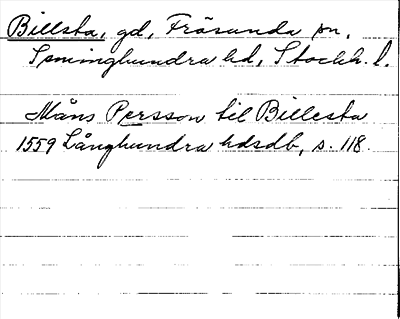 Billsta, gd, Fräsunda sn,
Seminghundra hd, Stockh. l.
Måns Persson til Billesta
1559 Långhundra hdsdb, s. 118.